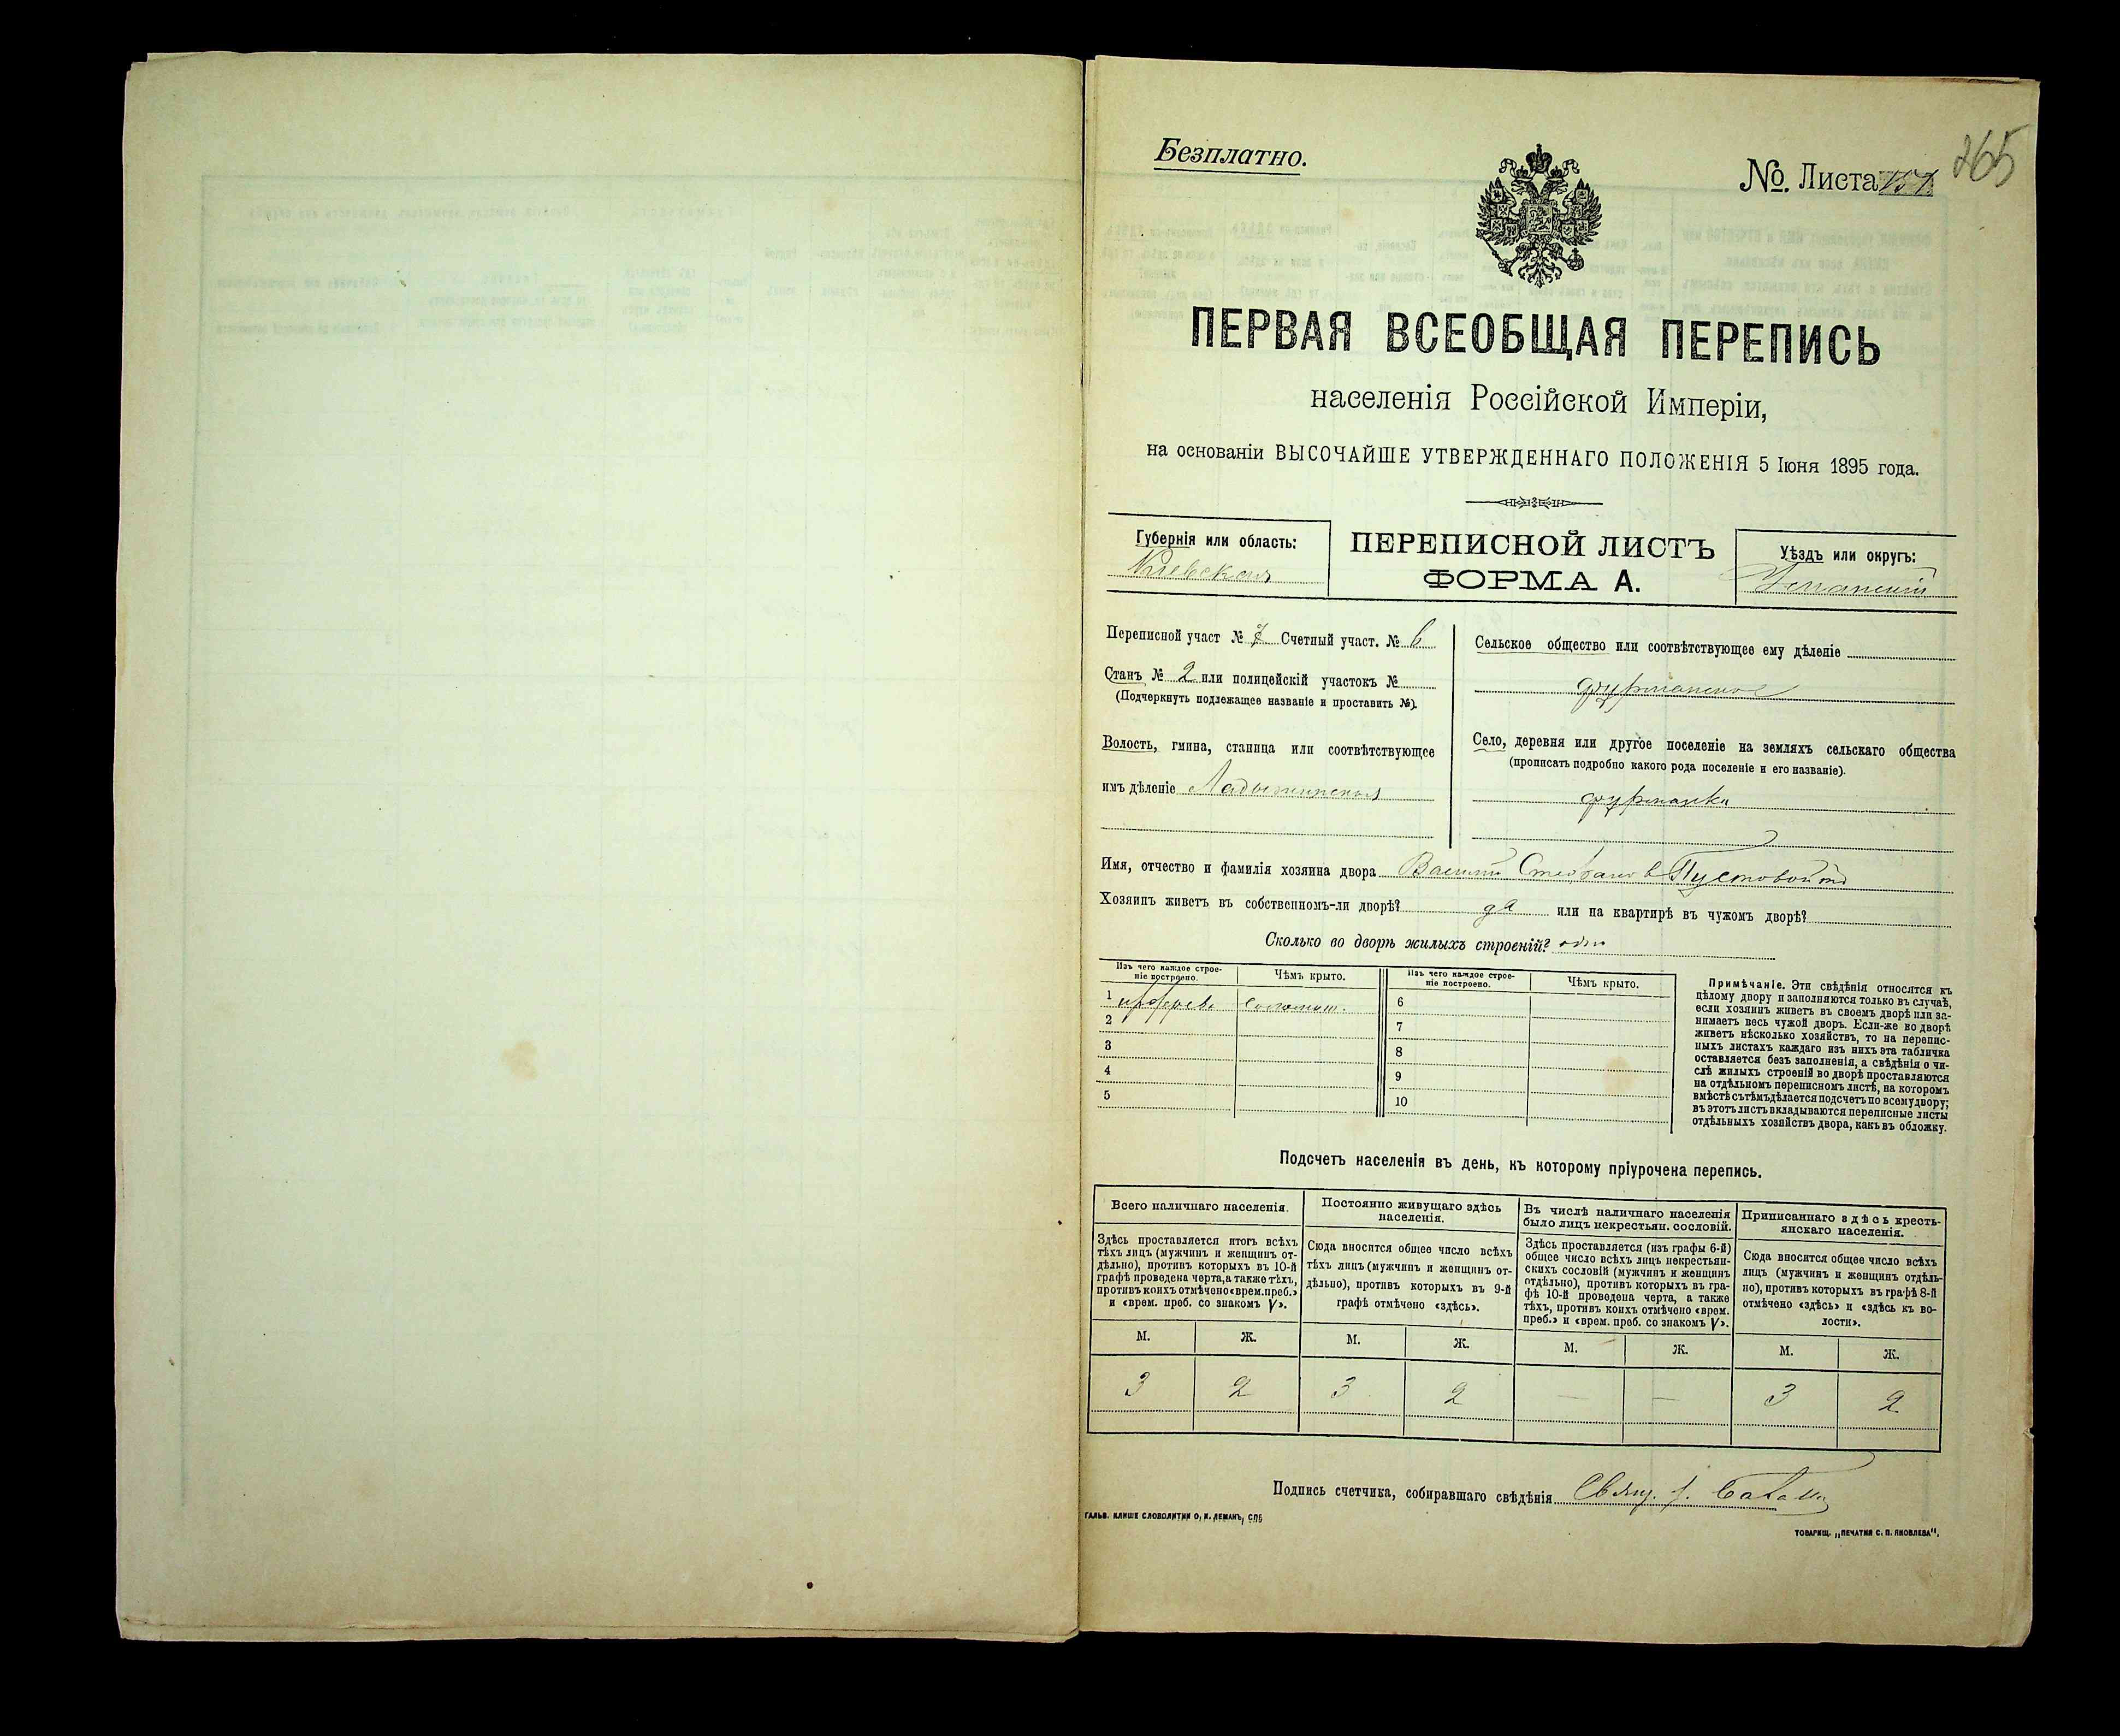 Безплатно.
№. Листа 151.
265
ПЕРВАЯ ВСЕОБЩАЯ ПЕРЕПИСЬ
населенія Россійской Имперіи,
на основаніи ВЫСОЧАЙШЕ УТВЕРЖДЕННАГО ПОЛОЖЕНІЯ 5 Іюня 1895 года.
Губернія или область:
Кіевская
ПЕРЕПИСНОЙ ЛИСТЪ
ФОРМА А.
Уѣздъ или округъ:
Уманскій
Переписной участ № 7 Счетный участ. № 6
Станъ № 2 или полицейскій участокъ №
(Подчеркнуть подлежащее названіе и проставить №).
Волость, гмина, станица или соотвѣтствующее
имъ дѣленіе Ладыжинская
Сельское общество или соотвѣтствующее ему дѣленіе
Фурманское
Село, деревня или другое поселеніе на земляхъ сельскаго общества
(прописать подробно какого рода поселеніе и его названіе).
Фурманка
Имя, отчество и фамилія хозяина двора Василій Стефановъ Пустовойтъ
Хозяинъ живетъ въ собственномъ-ли дворѣ? да или на квартирѣ въ чужомъ дворѣ?
Сколько во дворѣ жилыхъ строеній? одно
Изъ чего каждое строе-
ніе построено.
Чѣмъ крыто.
Изъ чего каждое строе-
ніе построено.
Чѣмъ крыто.
1 соломою.
2
3
4
5
6
7
8
9
10
Примѣчаніе. Эти свѣдѣнія относятся къ
цѣлому двору и заполняются только въ случаѣ,
если хозяинъ живетъ въ своемъ дворѣ или за-
нимаетъ весь чужой дворъ. Если-же во дворѣ
живетъ нѣсколько хозяйствъ, то на перепис-
ныхъ листахъ каждаго изъ нихъ эта табличка
оставляется безъ заполненія, а свѣдѣнія о чи-
слѣ жилыхъ строеній во дворѣ проставляются
на отдѣльномъ переписномъ листѣ, на которомъ
вмѣстѣ съ тѣмъ дѣлается подсчетъ по всему двору;
въ этотъ листъ вкладываются переписные листы
отдѣльныхъ хозяйствъ двора, какъ въ обложку.
Подсчетъ населенія въ день, къ которому пріурочена перепись.
Всего наличнаго населенія.
Здѣсь проставляется итогъ всѣхъ
тѣхъ лицъ (мужчинъ и женщинъ от-
дѣльно), противъ которыхъ въ 10-й
графѣ проведена черта, а также тѣхъ,
противъ коихъ отмѣчено «врем. преб.»
и «врем. преб. со знакомъ V».
Постоянно живущаго здѣсь
населенія.
Сюда вносится общее число всѣхъ
тѣхъ лицъ (мужчинъ и женщинъ от-
дѣльно), противъ которыхъ въ 9-й
графѣ отмѣчено «здѣсь».
Въ числѣ наличнаго населенія
было лицъ некрестьян. сословій.
Здѣсь проставляется (изъ графы 6-й)
общее число всѣхъ лицъ некрестьян-
скихъ сословій (мужчинъ и женщинъ
отдѣльно), противъ которыхъ въ гра-
фѣ 10-й проведена черта, а также
тѣхъ, противъ коихъ отмѣчено «врем.
преб.» и «врем. преб. со знакомъ V».
Приписаннаго здѣсь кресть-
янскаго населенія.
Сюда вносится общее число всѣхъ
лицъ (мужчинъ и женщинъ отдѣль-
но), противъ которыхъ въ графѣ 8-й
отмѣчено «здѣсь» и «здѣсь къ во-
лости».
М. Ж. М. Ж. М. Ж. М. Ж.
3 2 3 2 — — 3 2
Подпись счетчика, собиравшаго свѣдѣнія Свящ.
ГАЛЬВ. КЛИШЕ СЛОВОЛИТНИ О. И. ЛЕМАНЪ, СПБ
ТОВАРИЩ. „ПЕЧАТНЯ С. П. ЯКОВЛЕВА“,